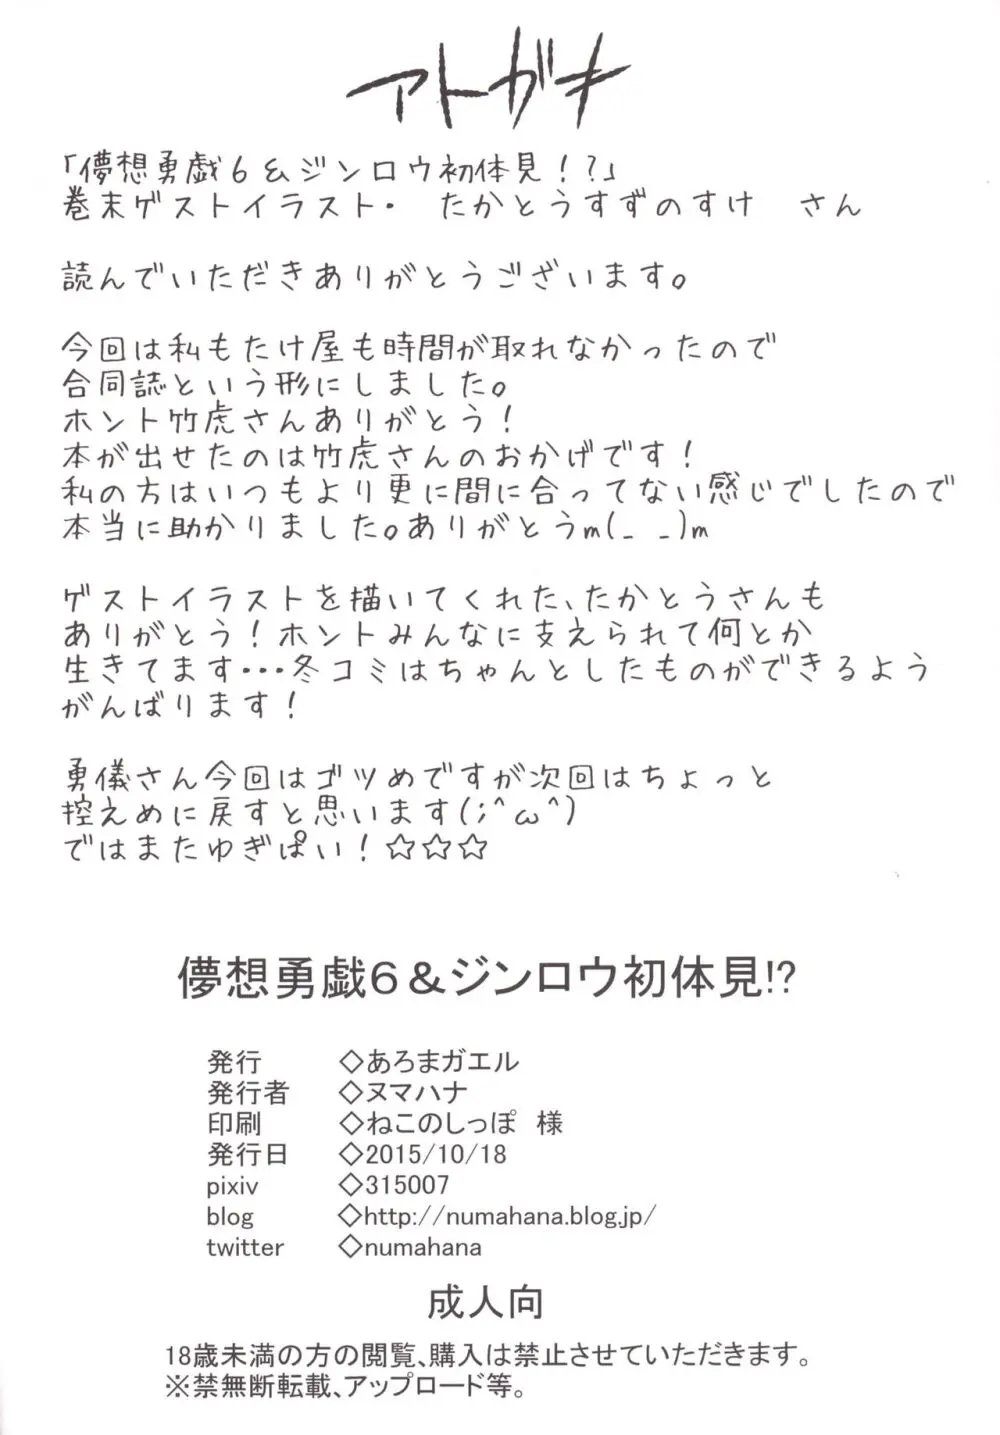 アトガキ
「儚想勇戯６＆ジンロウ初体見！?」
巻末ゲストイラスト・　たかとうすずのすけ　さん
読んでいただきありがとうございます。
今回は私もたけ屋も時間が取れなかったので
合同誌という形にしました。
ホント竹虎さんありがとう！
本が出せたのは竹虎さんのおかげです！
私の方はいつもより更に間に合ってない感じでしたので
本当に助かりました。ありがとうm(_ _)m
ゲストイラストを描いてくれた、たかとうさんも
ありがとう！ホントみんなに支えられて何とか
生きてます・・・冬コミはちゃんとしたものができるよう
がんばります！
勇儀さん今回はゴツめですが次回はちょっと
控えめに戻すと思います(;^ω^)
ではまたゆぎぱい！☆☆☆
儚想勇戯６＆ジンロウ初体見!?
発行　◇あろまガエル
発行者　◇ヌマハナ
印刷　◇ねこのしっぽ　様
発行日　◇2015/10/18
pixiv　◇315007
blog　◇http://numahana.blog.jp/
twitter　◇numahana
成人向
18歳未満の方の閲覧、購入は禁止させていただきます。
※禁無断転載、アップロード等。